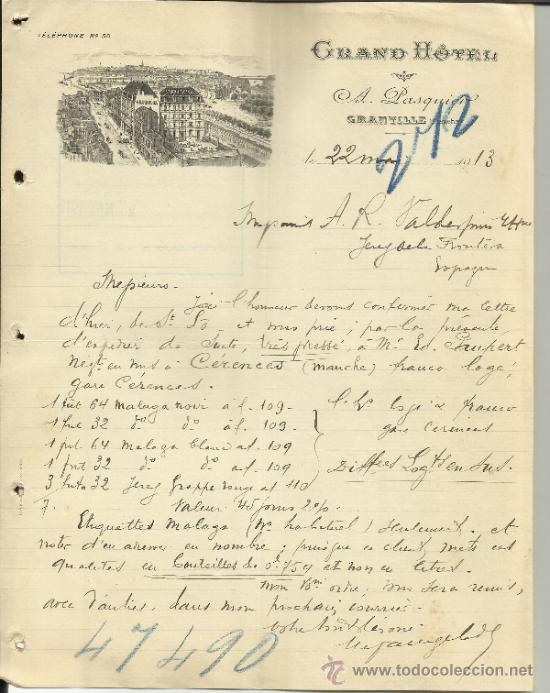 TÉLÉPHONE No 50
GRAND HÔTEL
A. Pasquier
GRANVILLE
le 22 mai 1913
242
A. R. Valdespino
Jerez de la Frontera
Espagne
Messieurs
J'ai l'honneur de vous confirmer ma lettre
d'hier, de St Lô et vous prie, par la présente,
d'expédier de suite, très pressé, à Mr Ed.
Négt en vins à Cérences (Manche) franco logé
gare Cérences.
1 fût 64 Malaga noir à f. 109.
1 fût 32 do do à f. 109.
1 fût 64 Malaga blanc à f. 109
1 fût 32 do do à f. 109.
3 fûts 32 Jerez Grappe rouge à f 110
7.
logé & franco
gare Cérences
Valeur 45 jours 2%
Etiquettes Malaga (habituel) seulement et
noter d'en en nombre; puisque ce client mets ces
qualités en bouteilles de 0.75 et non en litres.
Mon ordre, vous sera remis,
avec d'autres, dans mon prochain courrier.
Votre bien dévoué
47490
www.todocoleccion.net